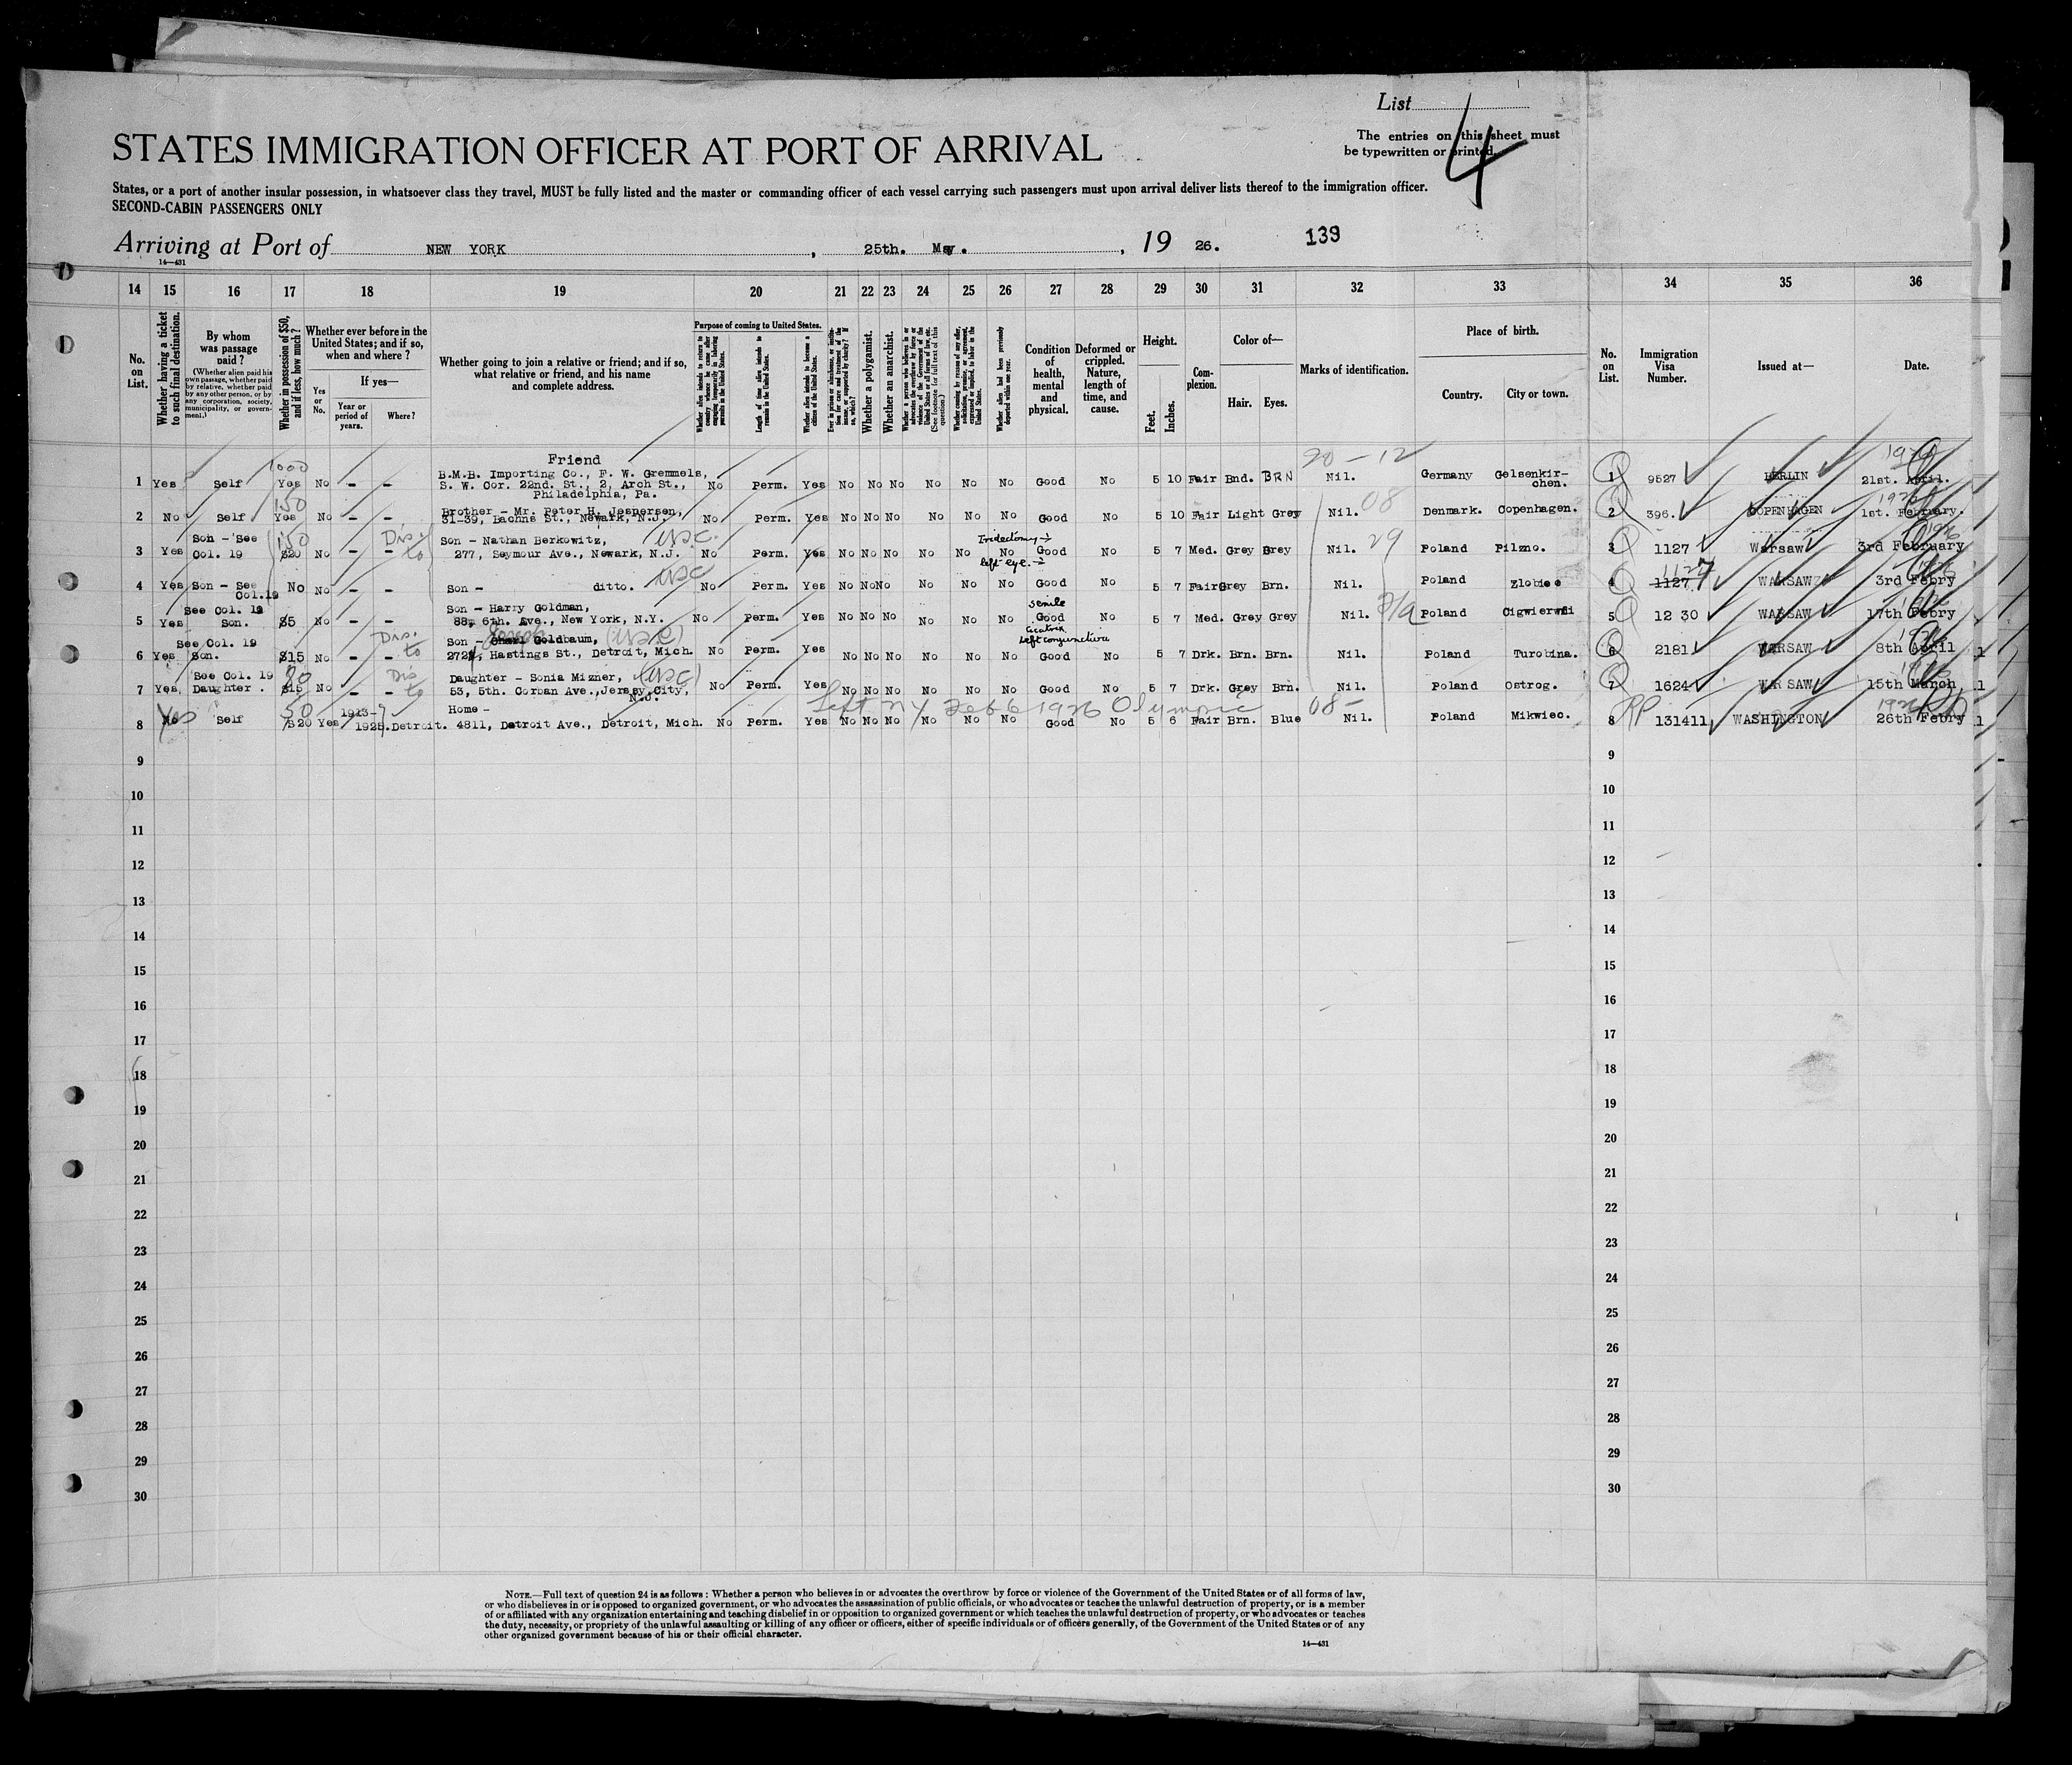 List
4
The entries on this sheet must
be typewritten or printed.
STATES IMMIGRATION OFFICER AT PORT OF ARRIVAL
States, or a port of another insular possession, in whatsoever class they travel, MUST be fully listed and the master or commanding officer of each vessel carrying such passengers must upon arrival deliver lists thereof to the immigration officer.
SECOND-CABIN PASSENGERS ONLY
Arriving at Port of NEW YORK, 25th. May., 19 26. 139
14—431
14 15 16 17 18 19 20 21 22 23 24 25 26 27 28 29 30 31 32 33 34 35 36
No. on List.
Whether having a ticket to such final destination.
By whom was passage paid?
(Whether alien paid his own passage, whether paid by relative, whether paid by any other person, or by any corporation, society, municipality, or government.)
Whether in possession of $50, and if less, how much?
Whether ever before in the United States; and if so, when and where?
If yes—
Yes or No.
Year or period of years.
Where?
Whether going to join a relative or friend; and if so, what relative or friend, and his name and complete address.
Purpose of coming to United States.
Length of time alien intends to remain in the United States.
Whether alien intends to become a citizen of the United States.
Whether a polygamist.
Whether an anarchist.
Whether alien had been previously deported within one year.
Condition of health, mental and physical.
Deformed or crippled. Nature, length of time, and cause.
Height.
Feet. Inches.
Complexion.
Color of—
Hair. Eyes.
Marks of identification.
Place of birth.
Country. City or town.
No. on List.
Immigration Visa Number.
Issued at—
Date.
1000 Friend 20-12 1926
1 Yes Self Yes No - - B.M.B. Importing Co., F. W. Gremmels, S. W. Cor. 22nd. St., 2, Arch St., Philadelphia, Pa. No Perm. Yes No No No No No No Good No 5 10 Fair Bnd. BRN Nil. Germany Gelsenkirchen. 1 9527 BERLIN 21st. April.
150 08 1926
2 No Self Yes No - - Brother - Mr. Peter H. Jespersen, 31-39, Bachns St., Newark, N.J. No Perm. Yes No No No No No No Good No 5 10 Fair Light Grey Nil. Denmark. Copenhagen. 2 396. COPENHAGEN 1st. February.
150 Dis. to USC. Iridectomy left eye. 29 1926
3 Yes Son - See Col. 19 $20 No - - Son - Nathan Berkowitz, 277, Seymour Ave., Newark, N.J. No Perm. Yes No No No No No No Good No 5 7 Med. Grey Grey Nil. Poland Pilzno. 3 1127 Warsaw 3rd February
USC 1127 1926
4 Yes Son - See Col.19 No No - - Son - ditto. No Perm. Yes No No No No No No Good No 5 7 Fair Grey Brn. Nil. Poland 4 1127 WARSAW 3rd Febry
senile 1926
5 Yes See Col. 19 Son. $5 No - - Son - Harry Goldman, 88, 6th. Ave., New York, N.Y. No Perm. Yes No No No No No No Good No 5 7 Med. Grey Grey Nil. Poland 5 12 30 WARSAW 17th Febry
Dis. to Joseph (USC) Cicatrix left conjunctiva 1926
6 Yes See Col. 19 Son. $15 No - - Son - Goldbaum, Hastings St., Detroit, Mich. No Perm. Yes No No No No No No Good No 5 7 Drk. Brn. Brn. Nil. Poland Turobina. 6 2181 WARSAW 8th April 1
Dis to (USC) 1926
7 Yes See Col. 19 Daughter. $15 No - - Daughter - Sonia Mizner, 53, 5th. Corban Ave., Jersey City, N.J. No Perm. Yes No No No No No No Good No 5 7 Drk. Grey Brn. Nil. Poland Ostrog. 7 1624 WARSAW 15th March 1
Yes 50 Left NY Feb 6 1926 Olympic 08- RP 1926
8 No Self $20 Yes 1913-1925. Detroit. Home - 4811, Detroit Ave., Detroit, Mich. No Perm. Yes No No No No No No Good No 5 6 Fair Brn. Blue Nil. Poland Mikwiec. 8 131411 WASHINGTON 26th Febry 1
9 9
10 10
11 11
12 12
13 13
14 14
15 15
16 16
17 17
18 18
19 19
20 20
21 21
22 22
23 23
24 24
25 25
26 26
27 27
28 28
29 29
30 30
NOTE.—Full text of question 24 is as follows: Whether a person who believes in or advocates the overthrow by force or violence of the Government of the United States or of all forms of law,
or who disbelieves in or is opposed to organized government, or who advocates the assassination of public officials, or who advocates or teaches the unlawful destruction of property, or is a member
of or affiliated with any organization entertaining and teaching disbelief in or opposition to organized government or which teaches the unlawful destruction of property, or who advocates or teaches
the duty, necessity, or propriety of the unlawful assaulting or killing of any officer or officers, either of specific individuals or of officers generally, of the Government of the United States or of any
other organized government because of his or their official character.
14—431